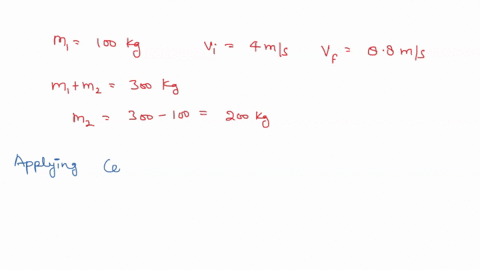 m₁ = 100 kg  vᵢ = 4 m/s  v_f = 0.8 m/s
m₁ + m₂ = 300 kg
m₂ = 300 - 100 = 200 kg
Applying Co